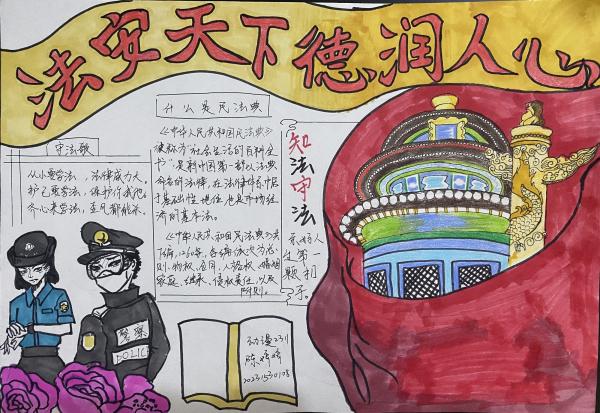 法安天下德润人心
什么是民法典
《中华人民共和国民法典》
被称为“社会生活的百科全
书”，是新中国第一部以法典
命名的法律，在法律体系中居
于基础性地位，也是市场经
济的基本法。
《中华人民共和国民法典》共
7编、1260条，各编依次为总
则、物权、合同、人格权、婚姻
家庭、继承、侵权责任，以及
附则。
守法歌
从小要学法，法律威力大。
护己重学法，保护你我他。
齐心来学法，
知法守法
系好人
生第一
颗扣
子。
警察
POLICE
动漫2311
陈婷婷